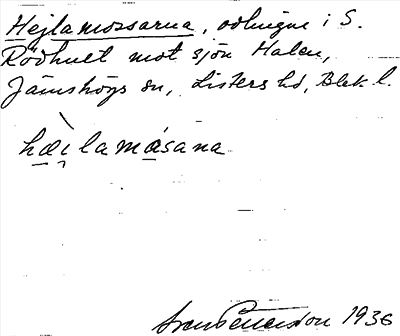 Hejlamossarna, odlingar i S.
Rödhult mot sjön Halen,
Jämshögs sn, Listers hd, Blek. l.
hæilamåsana
Sven Benson 1936